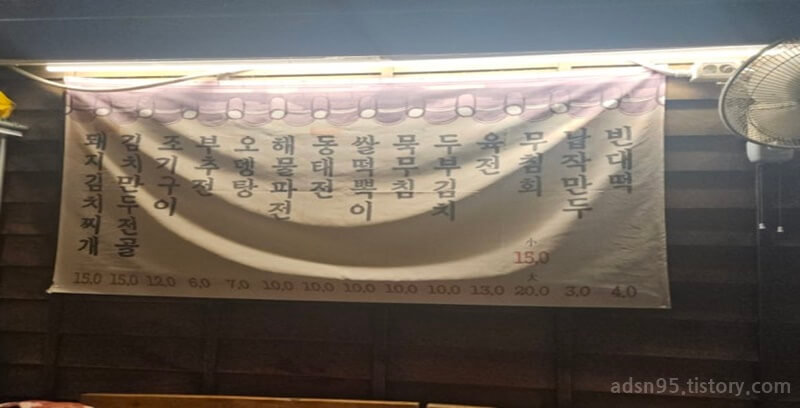 빈대떡 4.0
납작만두 3.0
무침회 小 15.0 大 20.0
육전 13.0
두부김치 10.0
묵무침 10.0
쌀떡뽁이 10.0
동태전 10.0
해물파전 10.0
오뎅탕 7.0
부추전 6.0
조기구이 12.0
김치만두전골 15.0
돼지김치찌개 15.0
adsn95.tistory.com